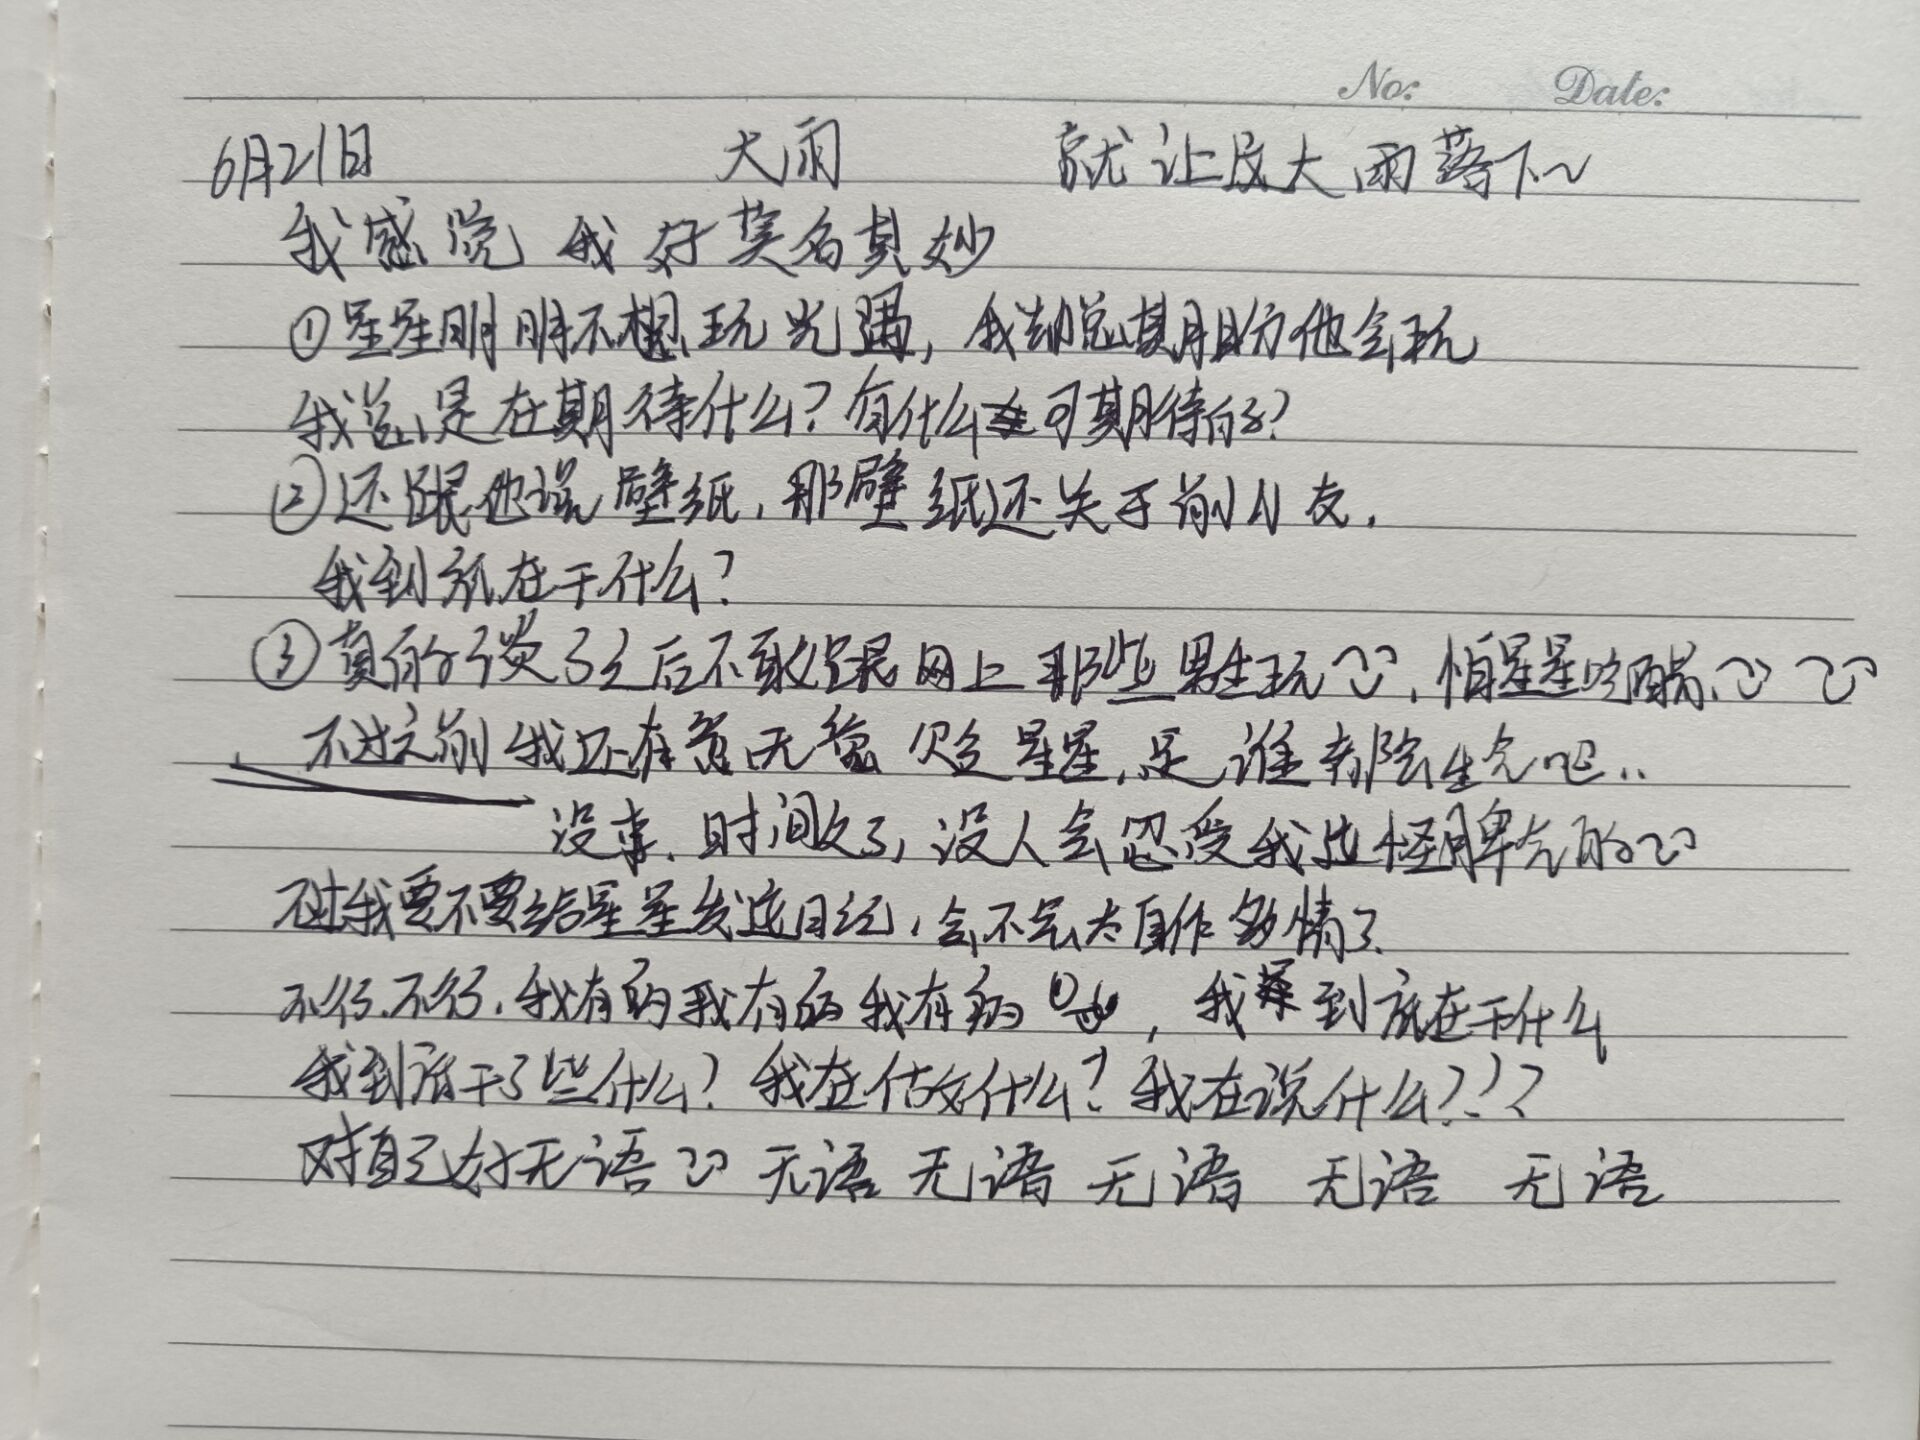 No: Date:
6月21日 大雨 就让大雨落下~
我感觉我好莫名其妙
①星星明明不想玩光遇，我却总其月目分他会玩
我总是在期待什么？有什么可期待的？
②还跟他说壁纸，那壁纸还关于前N友.
我到底在干什么？
③真的谈了之后不敢跟网上那些男生玩，怕星星吃醋、
不过之前我还有意无意贬星星，是谁都会生气吧..
没事.时间久了，没人会忍受我这怪脾气的
不过我要不要给星星发这日记，会不会太自作多情了.
不行.不行.我有病我有病我有病，我到底在干什么
我到底干了些什么？我在做什么？我在说什么？？？
对自己好无语 无语 无语 无语 无语 无语